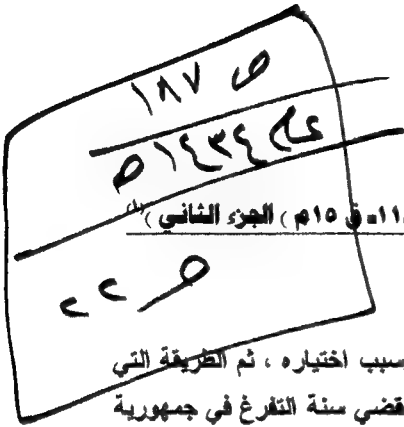 ص ١٨٧
علم ١٤٣٤ ه
١١ـ ق ١٥م ) الجزء الثاني )(١)
ص ٢٢
سبب اختياره ، ثم الطريقة التي
قضي سنة التفرغ في جمهورية